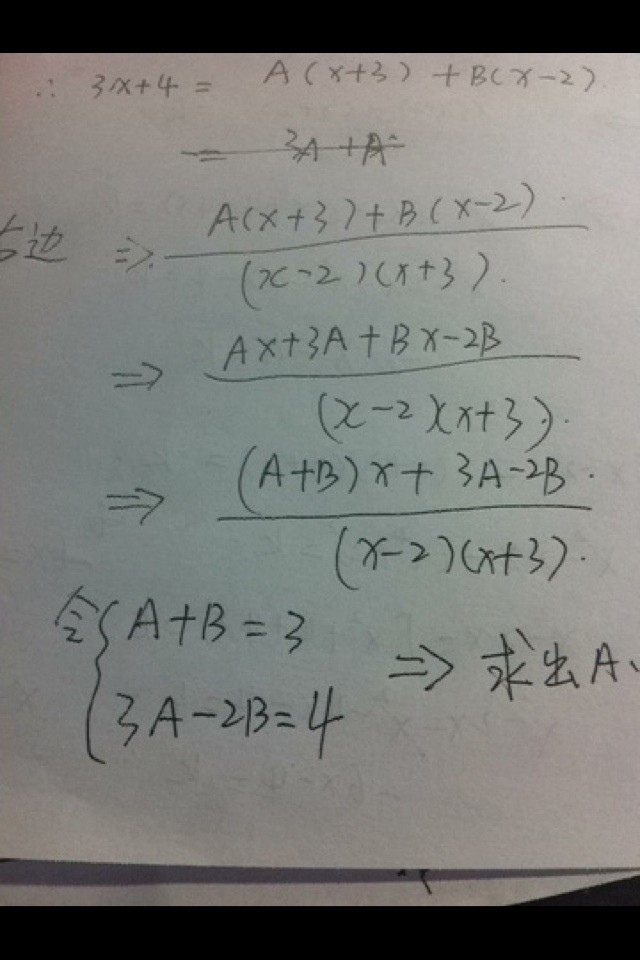 ∴ 3x+4 = A(x+3) + B(x-2).
= 3A + A
右边 ⇒ A(x+3)+B(x-2).
(x-2)(x+3).
⇒ Ax+3A+Bx-2B
(x-2)(x+3).
⇒ (A+B)x+3A-2B.
(x-2)(x+3).
令{A+B=3
3A-2B=4 ⇒ 求出A、